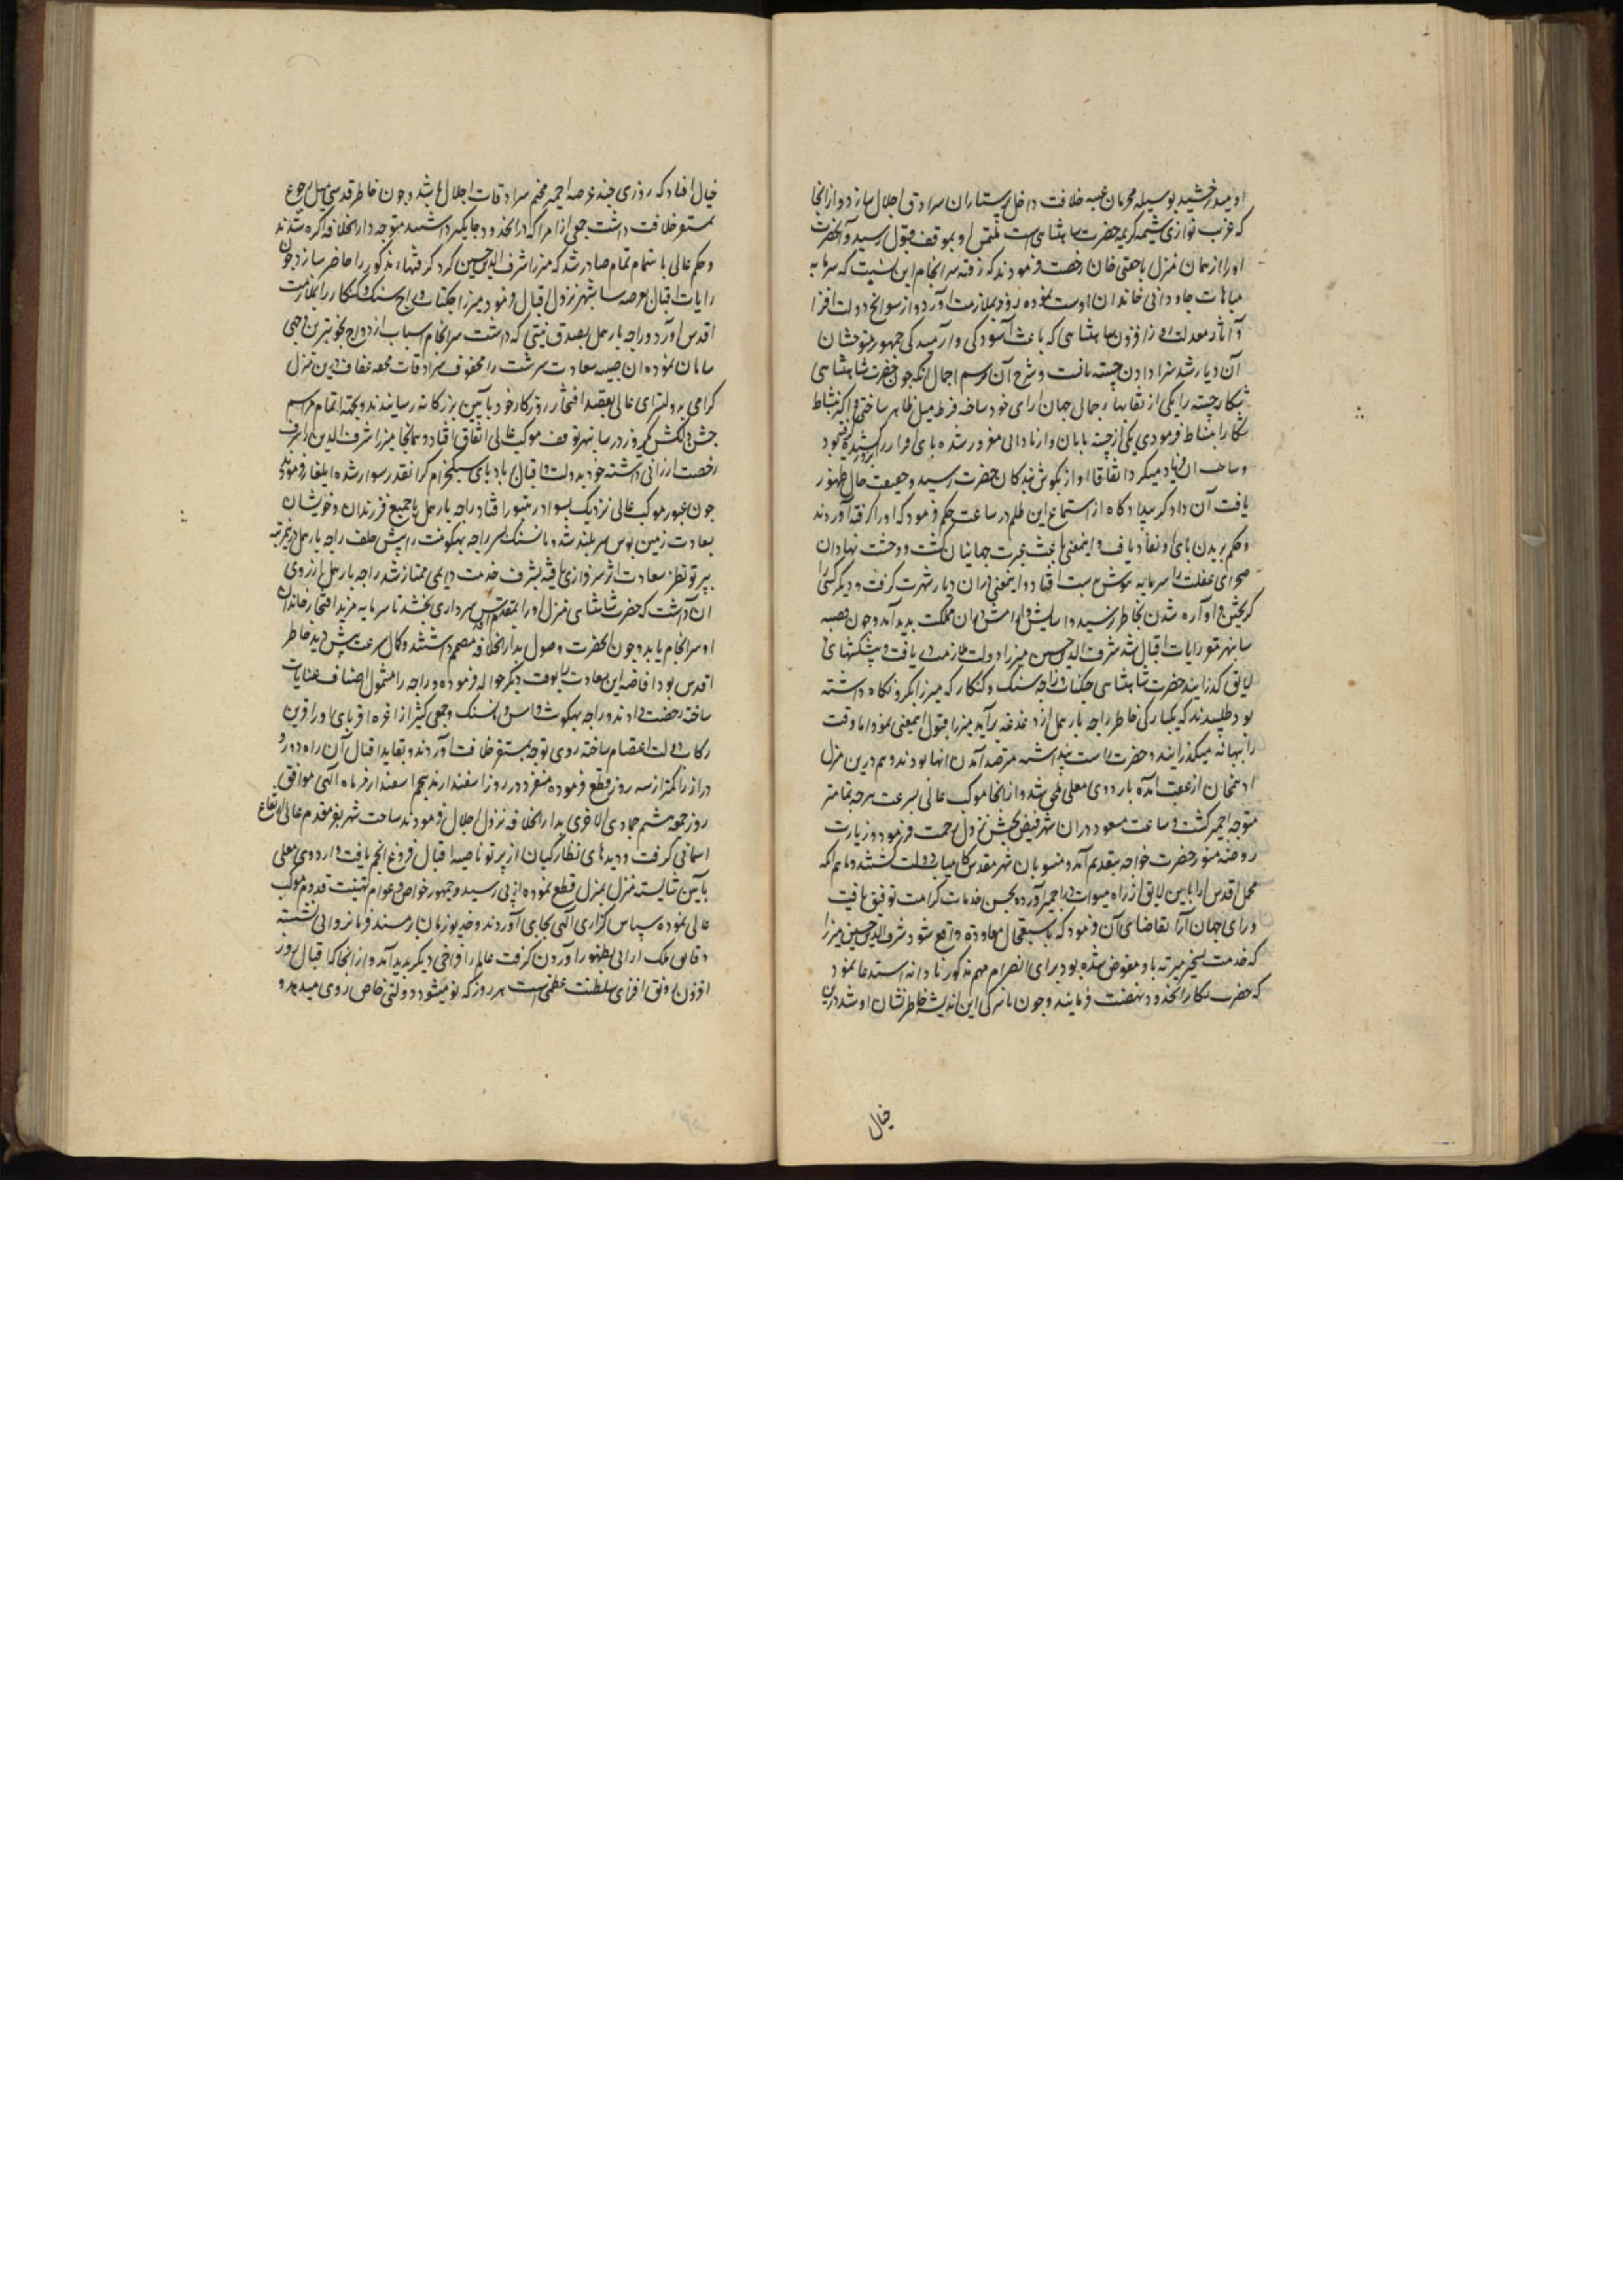 او میدرخشید بوسیله محرمان عتبه خلافت داخل پرستاران سرادق اجلال سازد و از انجا
که غریب نوازی شیمه کریمه حضرت شاهنشاهی است ملتمس او بموقف قبول رسید و آنحضرت
او را از همان منزل با چغتی خان رخصت فرمودند که رفته سرانجام این نسبت که سرمایه
مباهات جاودانی خاندان اوست نموده بزودی بملازمت آورد و از سوانح دولت افزا
و آثار معدلت روز افزون شاهنشاهی که باعث آسودگی و آرمیدگی جمهور متوحشان
آن دیار شد سزا دادن چیته بانست و شرح آن برسم اجمال آنکه چون حضرت شاهنشاهی
شکار چیته را یکی از نقابهای جمال جهان آرای خود ساخته فرط میل ظاهر ساختی و اکثر نشاط
شکار را بنشاط فرمودی یکی از چیته بانان از نادانی مغرور شده پای افزار کسی را بزور کشیده گرفته بود
و صاحب آن فریاد میکرد اتفاقا آواز بگوش بندگان حضرت رسید و حقیقت حال ظهور
یافت آن دادگر بیدادکاه از استماع این ظلم در ساعت حکم فرمود که او را گرفته آوردند
و حکم بریدن پای او نفاد یافت و اینمعنی باعث عبرت جهانیان گشت و وحشت نهادان
صحرای غفلت را سرمایه هوش بدست افتاد و اینمعنی در آن دیار شهرت گرفت و دیگر کسی را
گریختن و آواره شدن بخاطر نرسید و آسایش و آرامش در آن مملکت پدید آمد و چون قصبه
سانبهر مقر رایات اقبال شد شرف الدین حسین میرزا دولت ملازمت دریافت و پیشکشهای
لایق گذرانید حضرت شاهنشاهی جگناته و راجه سنک و کنکار که میرزا بگرو نگاه داشته
بود طلبیدند که یکبارگی خاطر راجه بارهمل از دغدغه برآید میرزا قبول اینمعنی نمود اما وقت
را ببهانه میگذرانید و حضرت راست پنداشته مترصد آمدن آنها بودند و هم درین منزل
ادهمخان از عقب آمده باردوی معلی ملحق شد و از انجا موکب عالی بسرعت هرچه تمامتر
متوجه اجمیر گشت و ساعت مسعود در آن شهر فیض بخش نزول رحمت فرمود و زیارت
روضه منور حضرت خواجه بتقدیم آمد و منسوبان شهر مقدس کامیاب دولت گشتند و ماهم انکه
محمل اقدس را بآیین لایق از راه میوات در اجمیر آورده بحسن خدمات کرامت توفیق یافت
و رای جهان آرا تقاضای آن فرمود که باستعجال معاوده واقع شود شرف الدین حسین میرزا
که خدمت تسخیر میرته باو مفوض شده بود برای انصرام مهم مذکور نادانه استدعا نمود
که حضرت شکار آنحدود نهضت فرمایند و چون ماسرکی این اندیشه خاطر نشان او شد درین
خیال
خیال افتاد که روزی چند عرصه اجمیر مخیم سرادقات اجلال باشد و چون خاطر قدسی میل رجوع
بمستقر خلافت داشت جمعی از امرا که در آنحدود جایگیر داشتند متوجه دارالخلافه اگره شدند
و حکم عالی باهتمام تمام صادر شد که میرزا شرف الدین حسین گرد گرفتهای مذکور را حاضر سازد چون
رایات اقبال بعرصه سانبهر نزول اقبال فرمود میرزا جگناته و راج سنک و کنکار را بملازمت
اقدس آورد و راجه بارهمل بصدق نیتی که داشت سرانجام اسباب ازدواج بخوبترین وجهی
سامان نموده آن صبیه سعادت سرشت را محفوف سرادقات محفه عفاف درین منزل
گرامی بدولتسرای عالی بعقید افتخار روزگار خود بآیین بزرگانه رسانیدند و بجهة اتمام مراسم
جشن دلکش یکروز در سانبهر توقف موکب عالی اتفاق افتاد و همانجا میرزا شرف الدین را شرف
رخصت ارزانی داشته خود بدولت و اقبال بر باد پای سبکخرام گرانقدر سوار شده ایلغار فرمودند
چون عبور موکب عالی نزدیک بسواد رنتبور افتاد راجه بارهمل با جمیع فرزندان و خویشان
بعادت زمین بوس سربلند شد و مانسنک پسر راجه بهگونت را پیش خلف راجه بارهمل درین مرتبه
پرتو نظر سعادت اثر سرفرازی یافته بشرف خدمت دایمی ممتاز شد راجه بارهمل آرزوی
آن داشت که حضرت شاهنشاهی منزل او را بمقدم اقدس سرداری بخشد تا سرمایه مزید افتخار خاندان
او سرانجام یابد و چون آنحضرت وصول بدارالخلافه مصمم داشتند و کمال سرعت پیش دید خاطر
اقدس بود افاضه این سعادت را بوقت دیگر حواله فرموده و راجه را مشمول اصناف عنایات
ساخته رخصت دادند و راجه بهگونت داس و مانسنک و جمعی کثیر از اعزه اقربای او را قرین
رکاب دولت اعتصام ساخته روی توجه بمستقر خلافت آوردند و بقاید اقبال آن راه دور و
دراز را کمتر از سه روز قطع فرموده منفرد در روز اسفندارمذ پنجم اسفندارمذ ماه الهی موافق
روز جمعه هشتم جمادی الاخری بدارالخلافه نزول اجلال فرمودند ساحت شهر بفر مقدم عالی ارتفاع
آسمانی گرفت و دیدهای نظارگیان از پرتو ناصیه اقبال فروغ انجم یافت و اردوی معلی
بآیین شایسته منزل بمنزل قطع نموده از پی رسید و جمهور خواص و عوام تهنیت قدوم موکب
عالی نموده سپاس گزاری الهی بجای آوردند و خدیو زمان بر مسند فرمانروایی نشسته
دقایق ملک آرایی بظهور آوردن گرفت عالم را فراخی دیگر پدید آمد و از انجا که اقبال روز
افزون رونق افزای سلطنت عظمی است هر روز که نو میشود دولتی خاص روی میدهد و